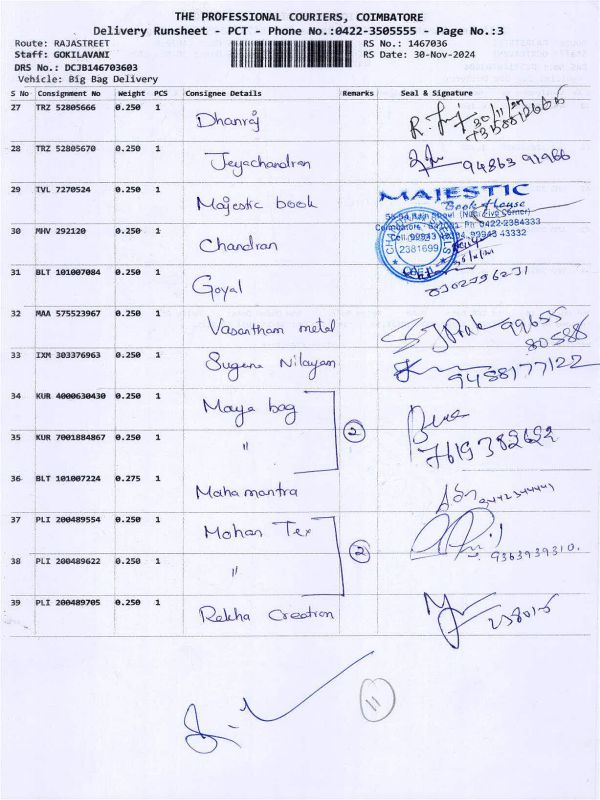 THE PROFESSIONAL COURIERS, COIMBATORE
Delivery Runsheet - PCT - Phone No.:0422-3505555 - Page No.:3
Route: RAJASTREET RS No.: 1467036
Staff: GOKILAVANI RS Date: 30-Nov-2024
DRS No.: DCJB146703603
Vehicle: Big Bag Delivery
S No Consignment No Weight PCS Consignee Details Remarks Seal & Signature
27 TRZ 52805666 0.250 1 Dhanraj 30/11/24
28 TRZ 52805670 0.250 1 Jeyachandran 94863 91966
29 TVL 7270524 0.250 1 Majestic book MAJESTIC
Book of House
Ph: 0422-2384333
30 MHV 292120 0.250 1 Chandran 2381699
31 BLT 101007084 0.250 1 Goyal
32 MAA 575523967 0.250 1 Vasantham metal 99655
80588
33 IXM 303376963 0.250 1 Sugena Nilayam 9488177122
34 KUR 4000630430 0.250 1 Maya bag 2
35 KUR 7001884867 0.250 1 " 7619382622
36 BLT 101007224 0.275 1 Mahamantra
37 PLI 200489554 0.250 1 Mohan Tex 2
38 PLI 200489622 0.250 1 " 9363939310.
39 PLI 200489705 0.250 1 Rekha Creation
11